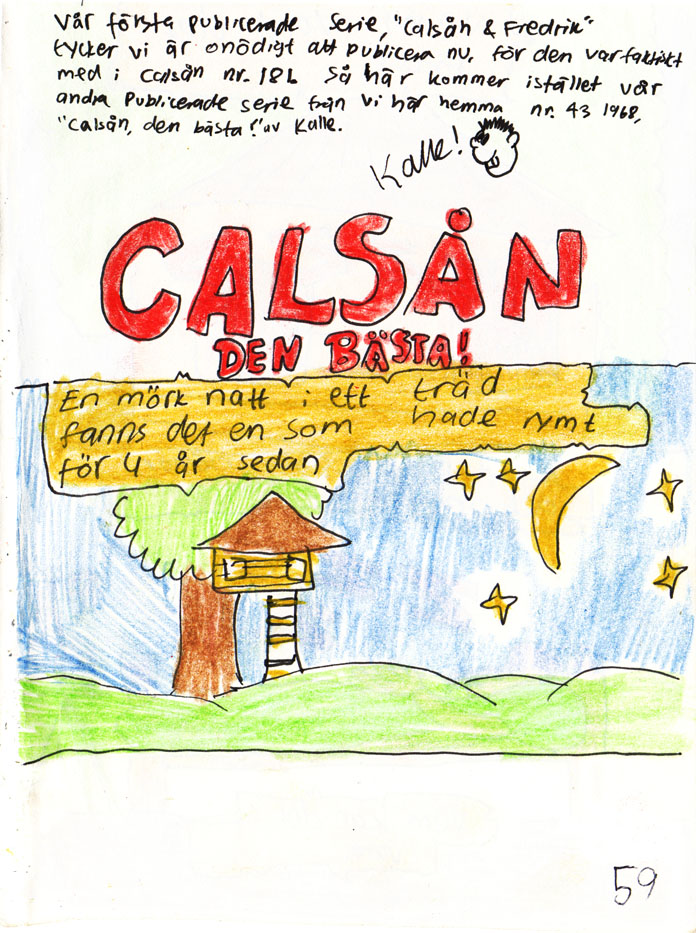 Vår första publicerade serie, "Calsån & Fredrik"
tycker vi är onödigt att publicera nu, för den var faktiskt
med i Calsån nr. 18L så här kommer istället vår
andra publicerade serie från vi här hemma nr. 43 1968,
"Calsån, den bästa!" av Kalle.
Kalle!
CALSÅN
DEN BÄSTA!
En mörk natt i ett träd
fanns det en som hade rymt
för 4 år sedan
59